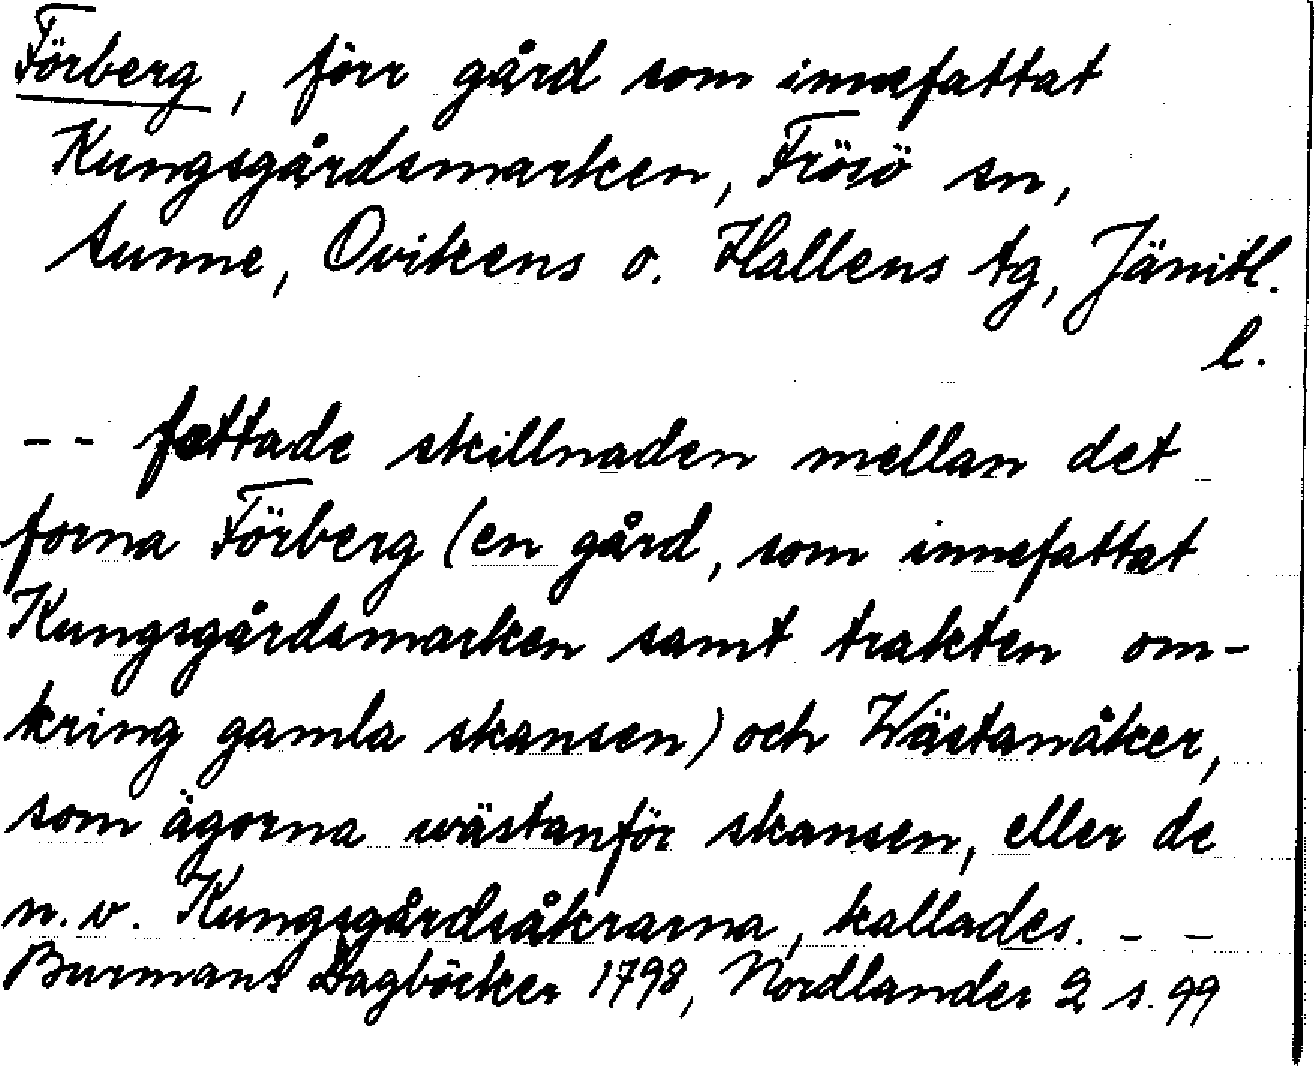 Förberg, förr gård som innefattat
Kungsgårdsmarken, Frösö sn,
Sunne, Ovikens o. Hallens tg, Jämtl.
l.
-- fattade skillnaden mellan det
forna Förberg (en gård, som innefattat
Kungsgårdsmarken samt trakten om-
kring gamla skansen) och Wästanåker,
som ägorna wästanför skansen, eller de
n.v. Kungsgårdsåkrarna, kallades. - -
Burmans Dagböcker 1798, Nordlander 2 s. 99